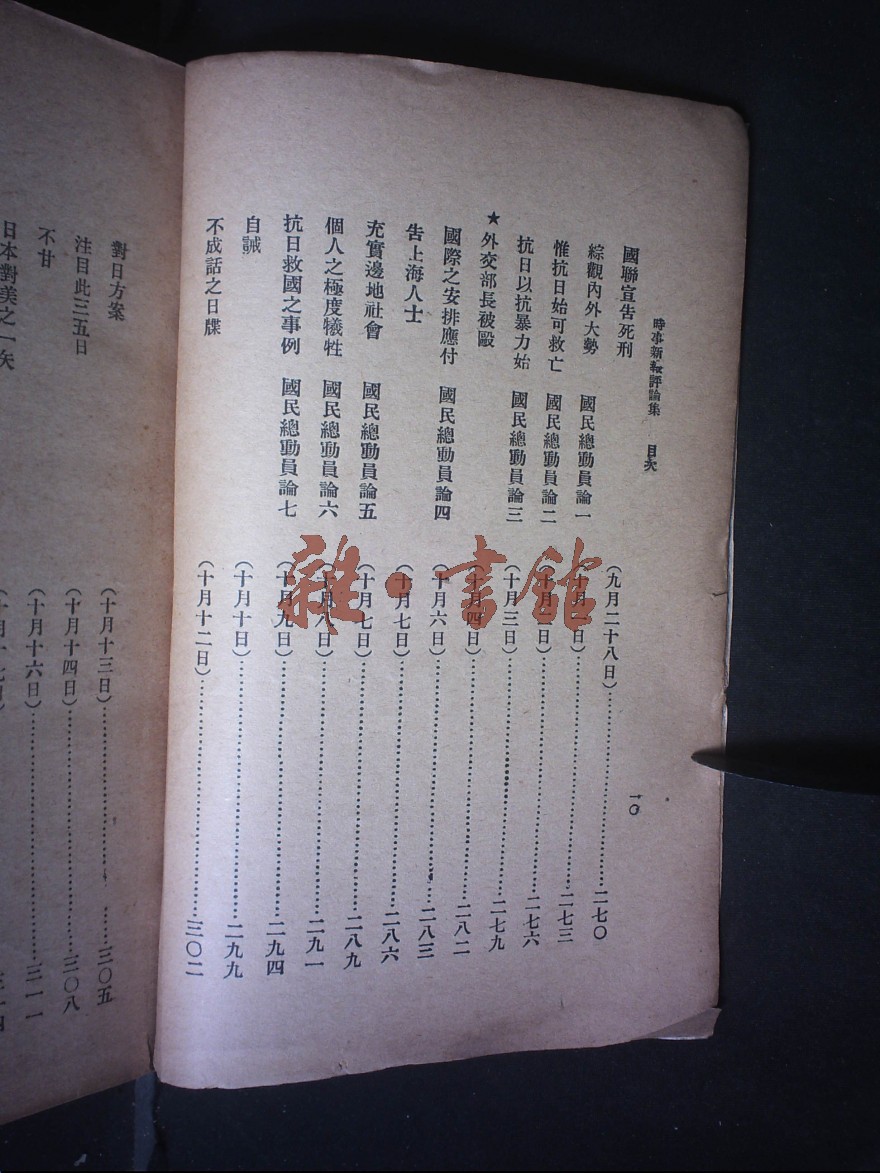 時事新報評論集 目次
一〇
國聯宣告死刑 (九月二十八日)……二七〇
綜觀內外大勢 國民總動員論一 (十月一日)……二七三
惟抗日始可救亡 國民總動員論二 (十月 日)……二七六
抗日以抗暴力始 國民總動員論三 (十月三日)……二七九
★外交部長被毆 (十月四日)……二八二
國際之安排應付 國民總動員論四 (十月六日)……二八三
告上海人士 (十月七日)……二八六
充實邊地社會 國民總動員論五 (十月七日)……二八九
個人之極度犧牲 國民總動員論六 (十月八日)……二九一
抗日救國之事例 國民總動員論七 (十月九日)……二九四
自誡 (十月十日)……二九九
不成話之日牒 (十月十二日)……三〇二
對日方案 (十月十三日)……三〇五
注目此三五日 (十月十四日)……三〇八
不甘 (十月十六日)……三一一
日本對美之一矢 (十月十七日)
雜·書館